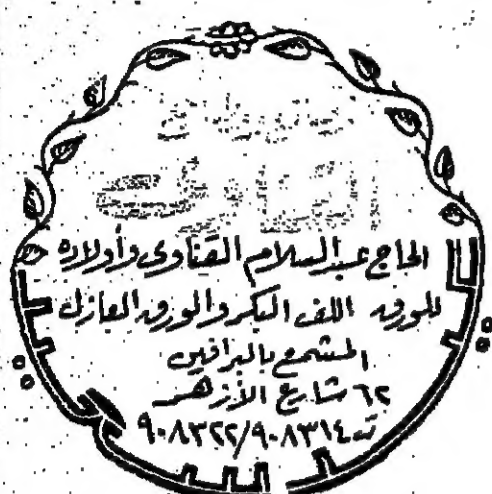 الحاج عبد السلام القناوى وأولاده
للورق اللف البكر والورق العازل
المشمع بالبرافين
٦٢ شارع الأزهر
ت ٩٠٨٣١٤/٩٠٨٣٢٢